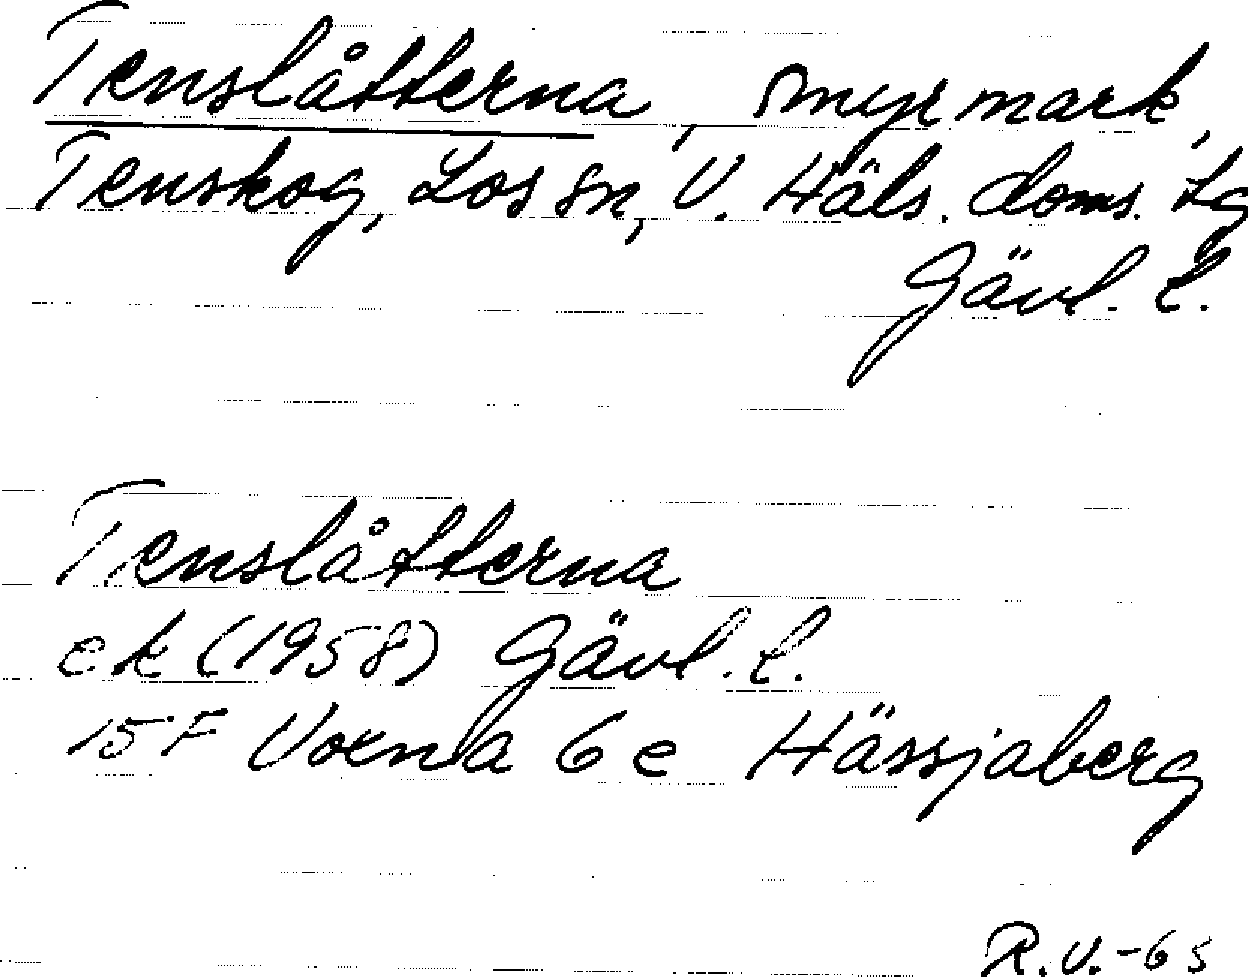 Tenslåtterna, myrmark,
Tenskog, Los sn, V. Häls. doms. tg
Gävl. l.
Tenslåtterna
ek (1958) Gävl. l.
15F Voxna 6 e Hässjaberg
R.V. -65